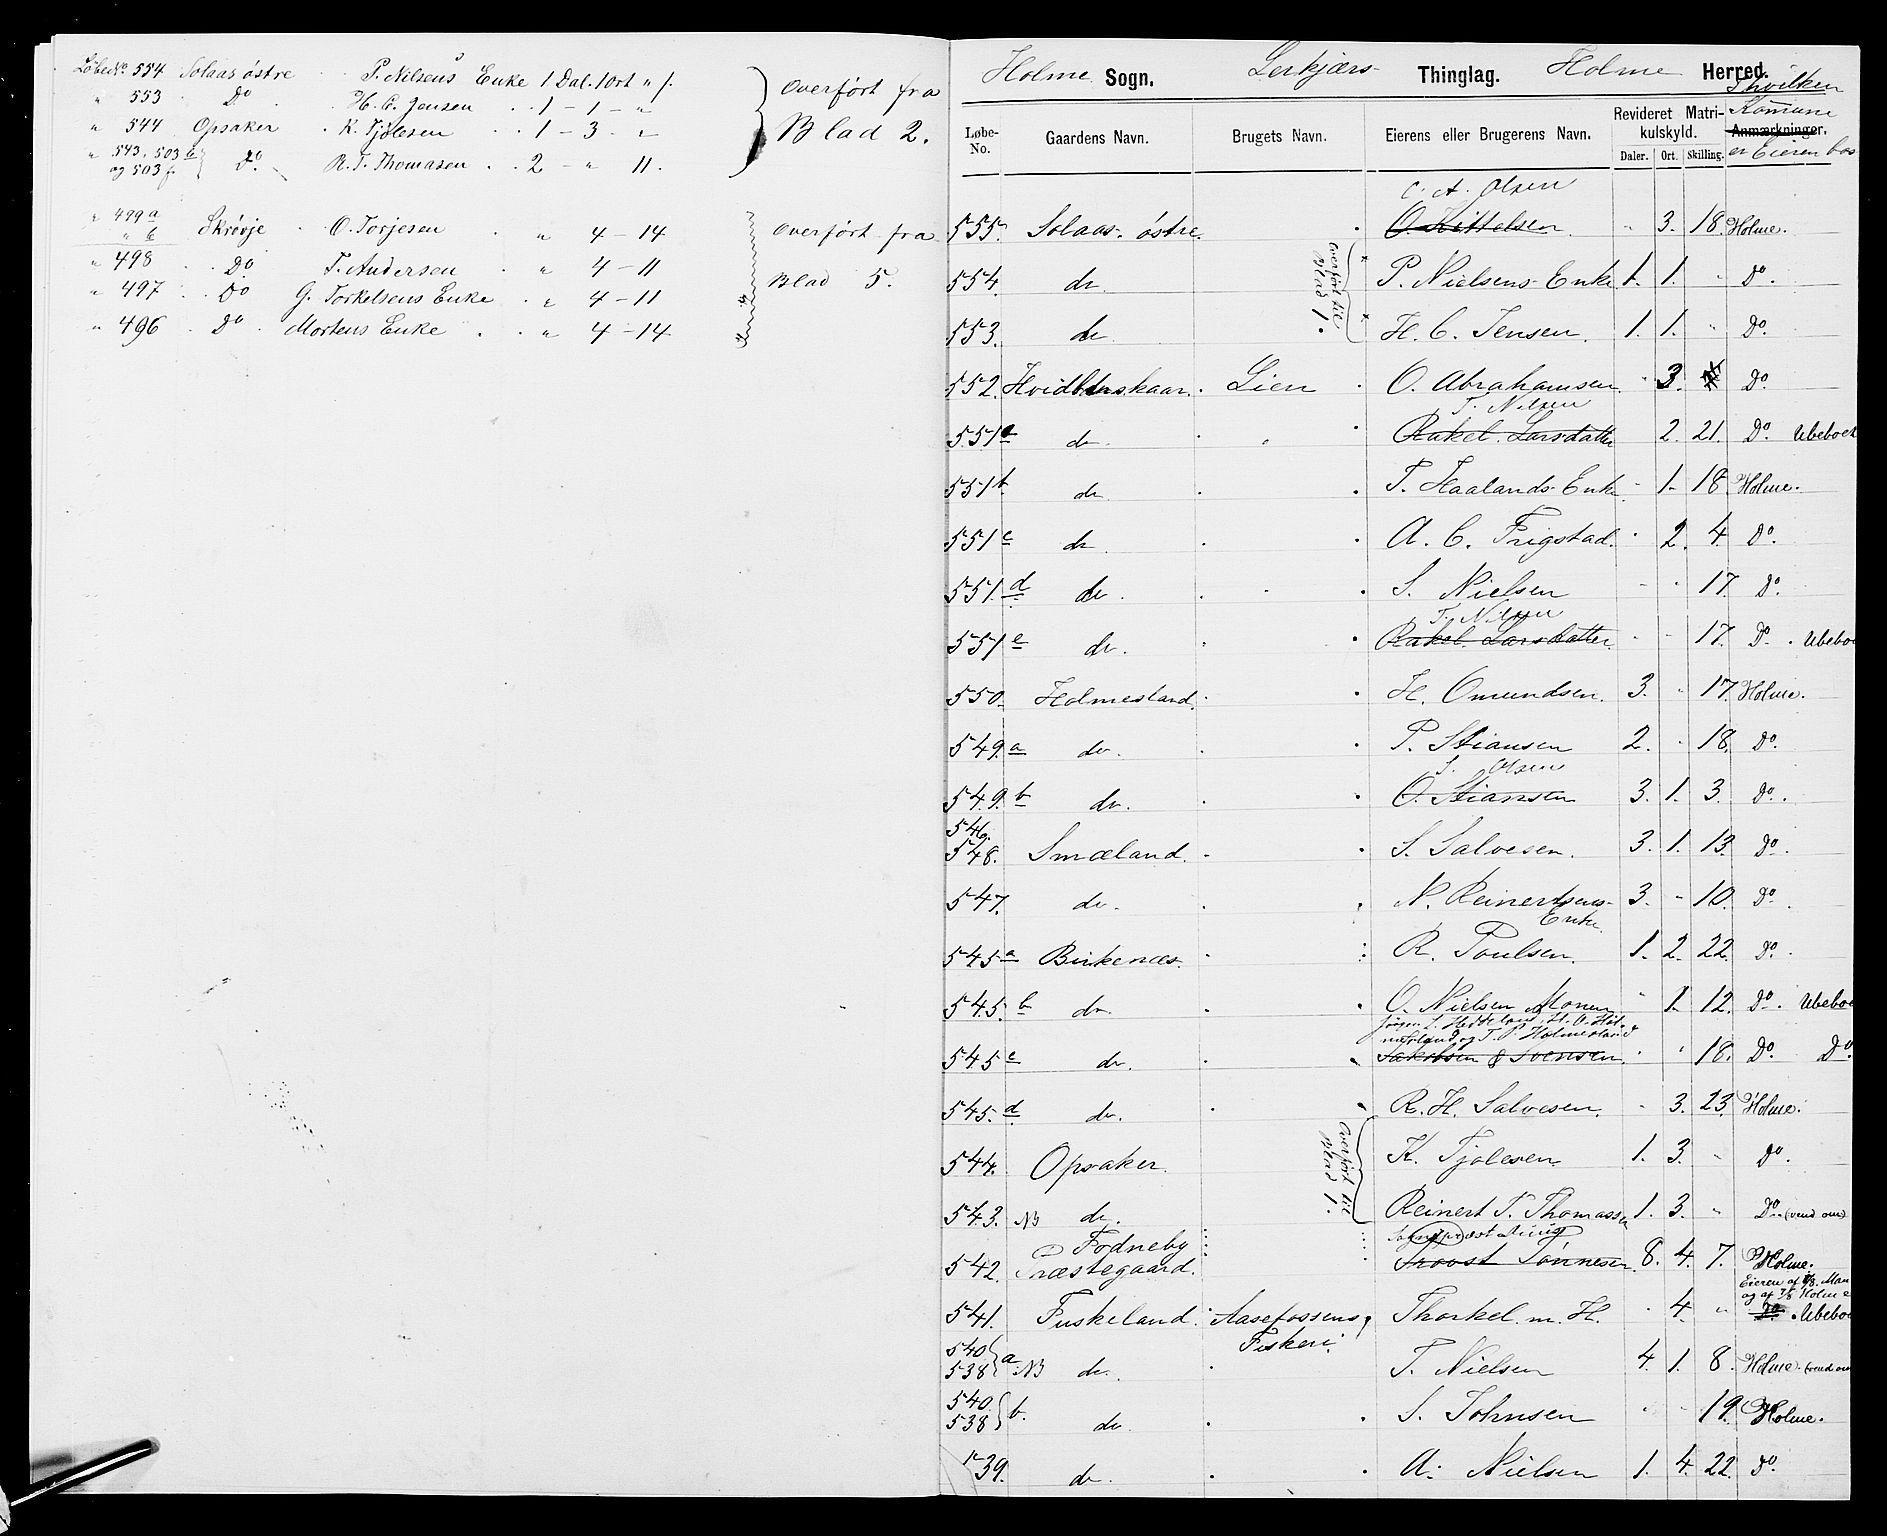 LøbeNo. 554 Solaas østre P. Nilsens Enke 1 Dal. 1 Ort " s.
" 553 Do H. C. Jensen 1 - 1 - "
" 544 Opsaker K. Tjølesen 1 - 3 - "
" 543, 503 b og 503 f. Do R. T. Thomasen 2 - " 11.
Overført fra
Blad 2.
" 499 a
" " b Skrøvje O. Torjesen " 4 - 14
" 498 Do T. Andersen " 4 - 11
" 497 Do G. Torkelsens Enke " 4 - 11
" 496 Do Mortens Enke " 4 - 14
Overført fra
Blad 5.
Holme Sogn. Lerkjærs- Thinglag. Holme Herred.
Løbe-No. Gaardens Navn. Brugets Navn. Eierens eller Brugerens Navn. Revideret Matrikulskyld. Daler. Ort. Skilling. Anmærkninger.
I hvilken
Komune
er Eieren bos
C. A. Olsen
555. Solaas østre. O. Kittelsen " 3. 18. Holme.
554. do. P. Nielsens Enke 1. 1. " Do.
overført til
Blad 1.
553. do H. C. Jensen. 1. 1. " Do.
552. Hvidbergskaar. Lien O. Abrahamsen " 3. Do.
T. Nilsen
551 a do. " Rakel Larsdatter 2. 21. Do. Ubeboet
551 b. do. T. Haalands Enke " 1. 18 Holme.
551 c do. A. C. Frigstad. " 2. 4. Do.
551. d do. S. Nielsen " " 17. Do.
T. Nilsen
551 e do. Rakel Larsdatter. " " 17. Do. Ubeboe
550. Holmesland. H. Omundsen. 3. " 17. Holme.
549. a do. P. Stiansen 2. " 18. Do.
S. Olsen
549. b do. O. Stiansen 3. 1. 3. Do.
546.
548. Smæland. S. Salvesen. 3. 1. 13. Do.
547. do. N. Reinertsens 3. " 10. Do.
Enke.
545 a Birkenæs. R. Poulsen. 1. 2. 22. Do.
545. b do. O. Nielsen Monen " 1. 12. Do. Ubeboe
Jørgen L. Heddeland, H. O. Hol-
mesland og T. P. Holmesland
545 c do. Jakobsen & Svensen " " 18. Do. Do.
545. d do. R. H. Salvesen. " 3. 23. Holme.
544. Opsaker K. Tjølesen. 1. 3. " Do.
overført til
Blad 1.
543. NB do. Reinert T. Thomassen 1. 3. " Do. (vend om)
Fodneby Sognepræst
542. Præstegaard. Provst Tønnesen. 8. 4. 7. Holme.
Eieren af 1/8. Man
og af 7/8 Holme
541. Fuskeland. Aasefossens Thorkel m. H. " 4. " Do. Ubeboe
Fiskeri.
540
538 a NB do. T. Nielsen 4. 1. 8. Holme. (vend om
540.
538 b. do. S. Johnsen " " 19. Holme.
539. do. A. Nielsen 1. 4. 22. Do.